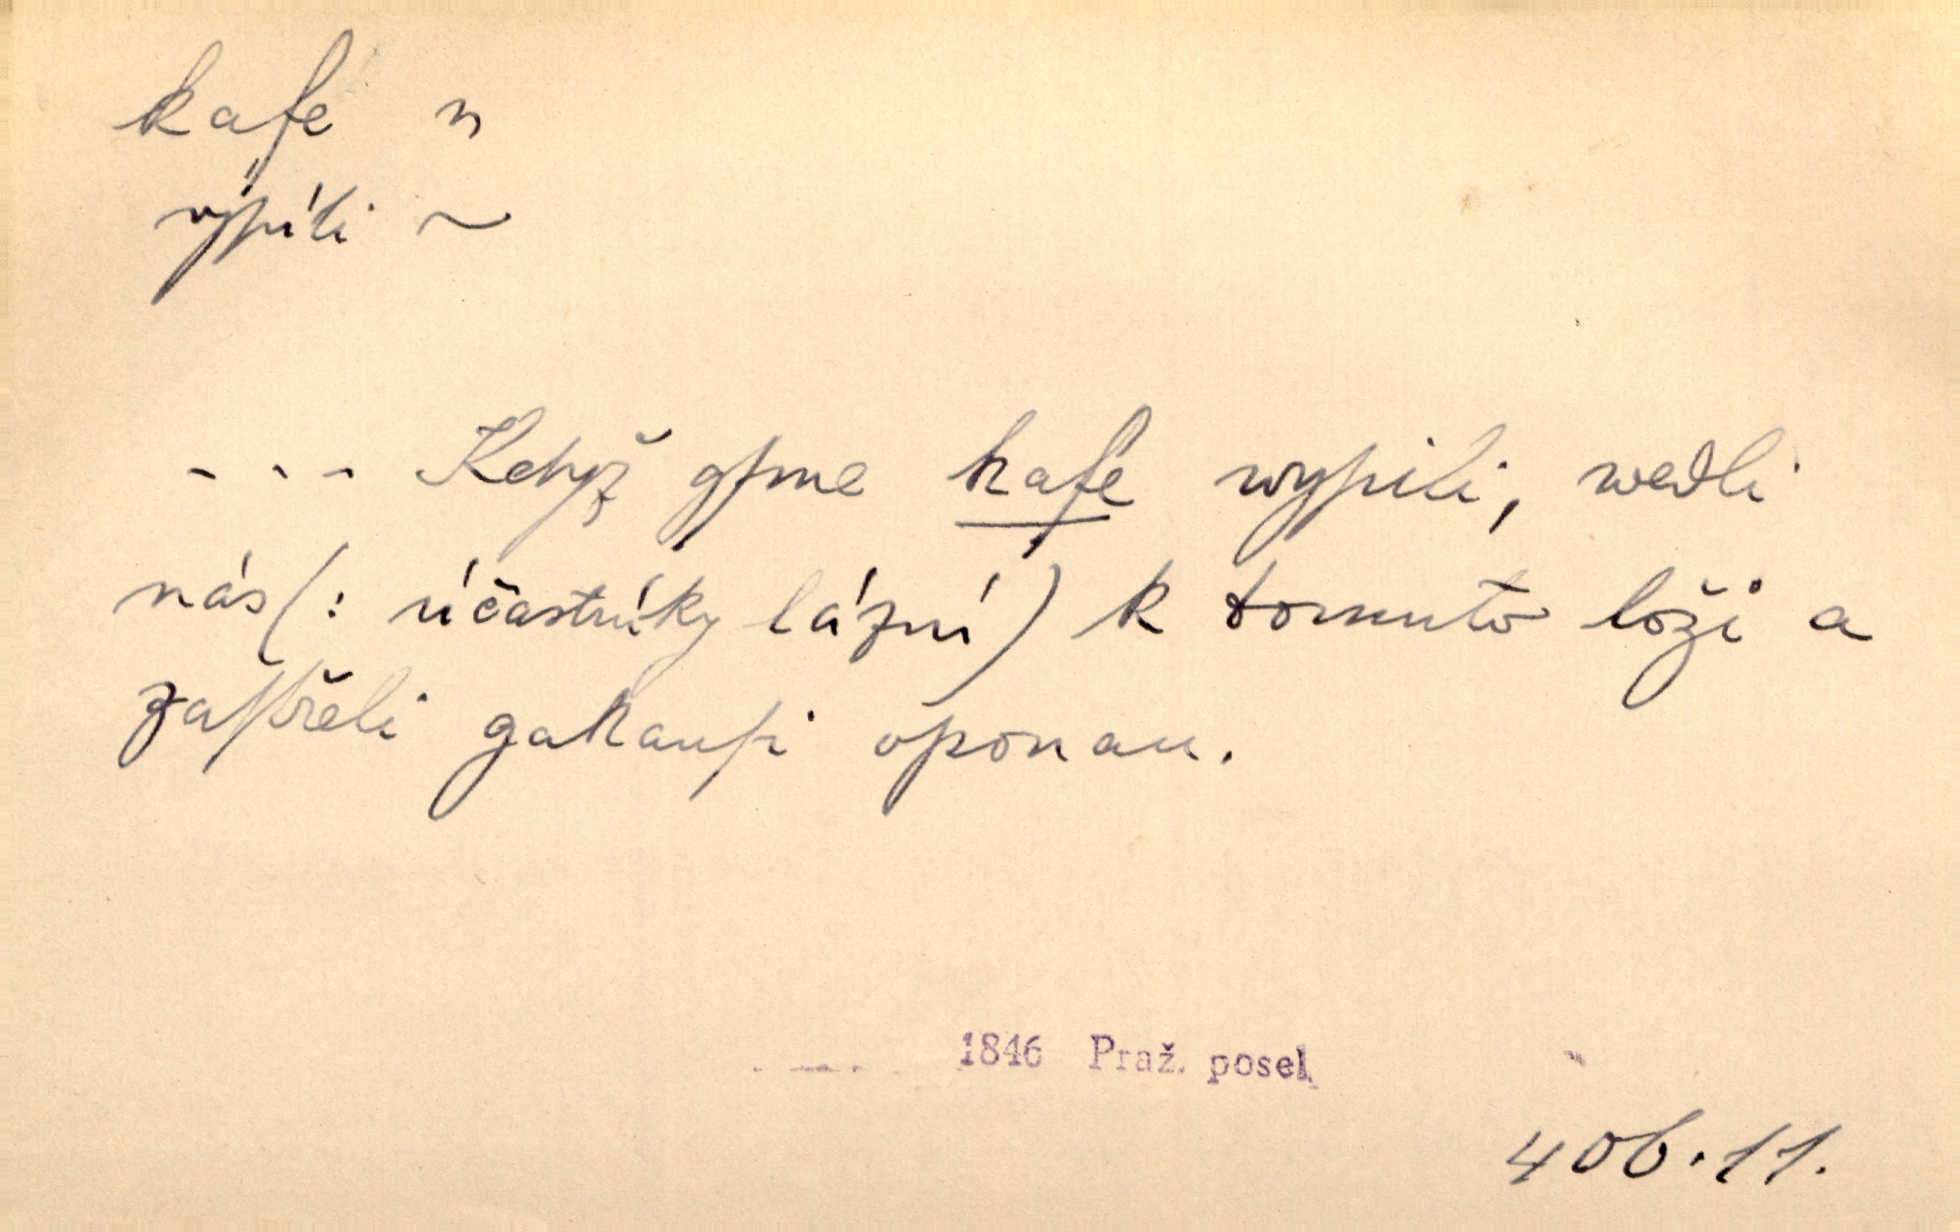 kafe n
vypíti ~
- - - Když gsme kafe wypili, wedli
nás (: účastníky lázní) k tomuto loži a
zastřeli gakausi oponau.
1846 Praž. posel
406.11.